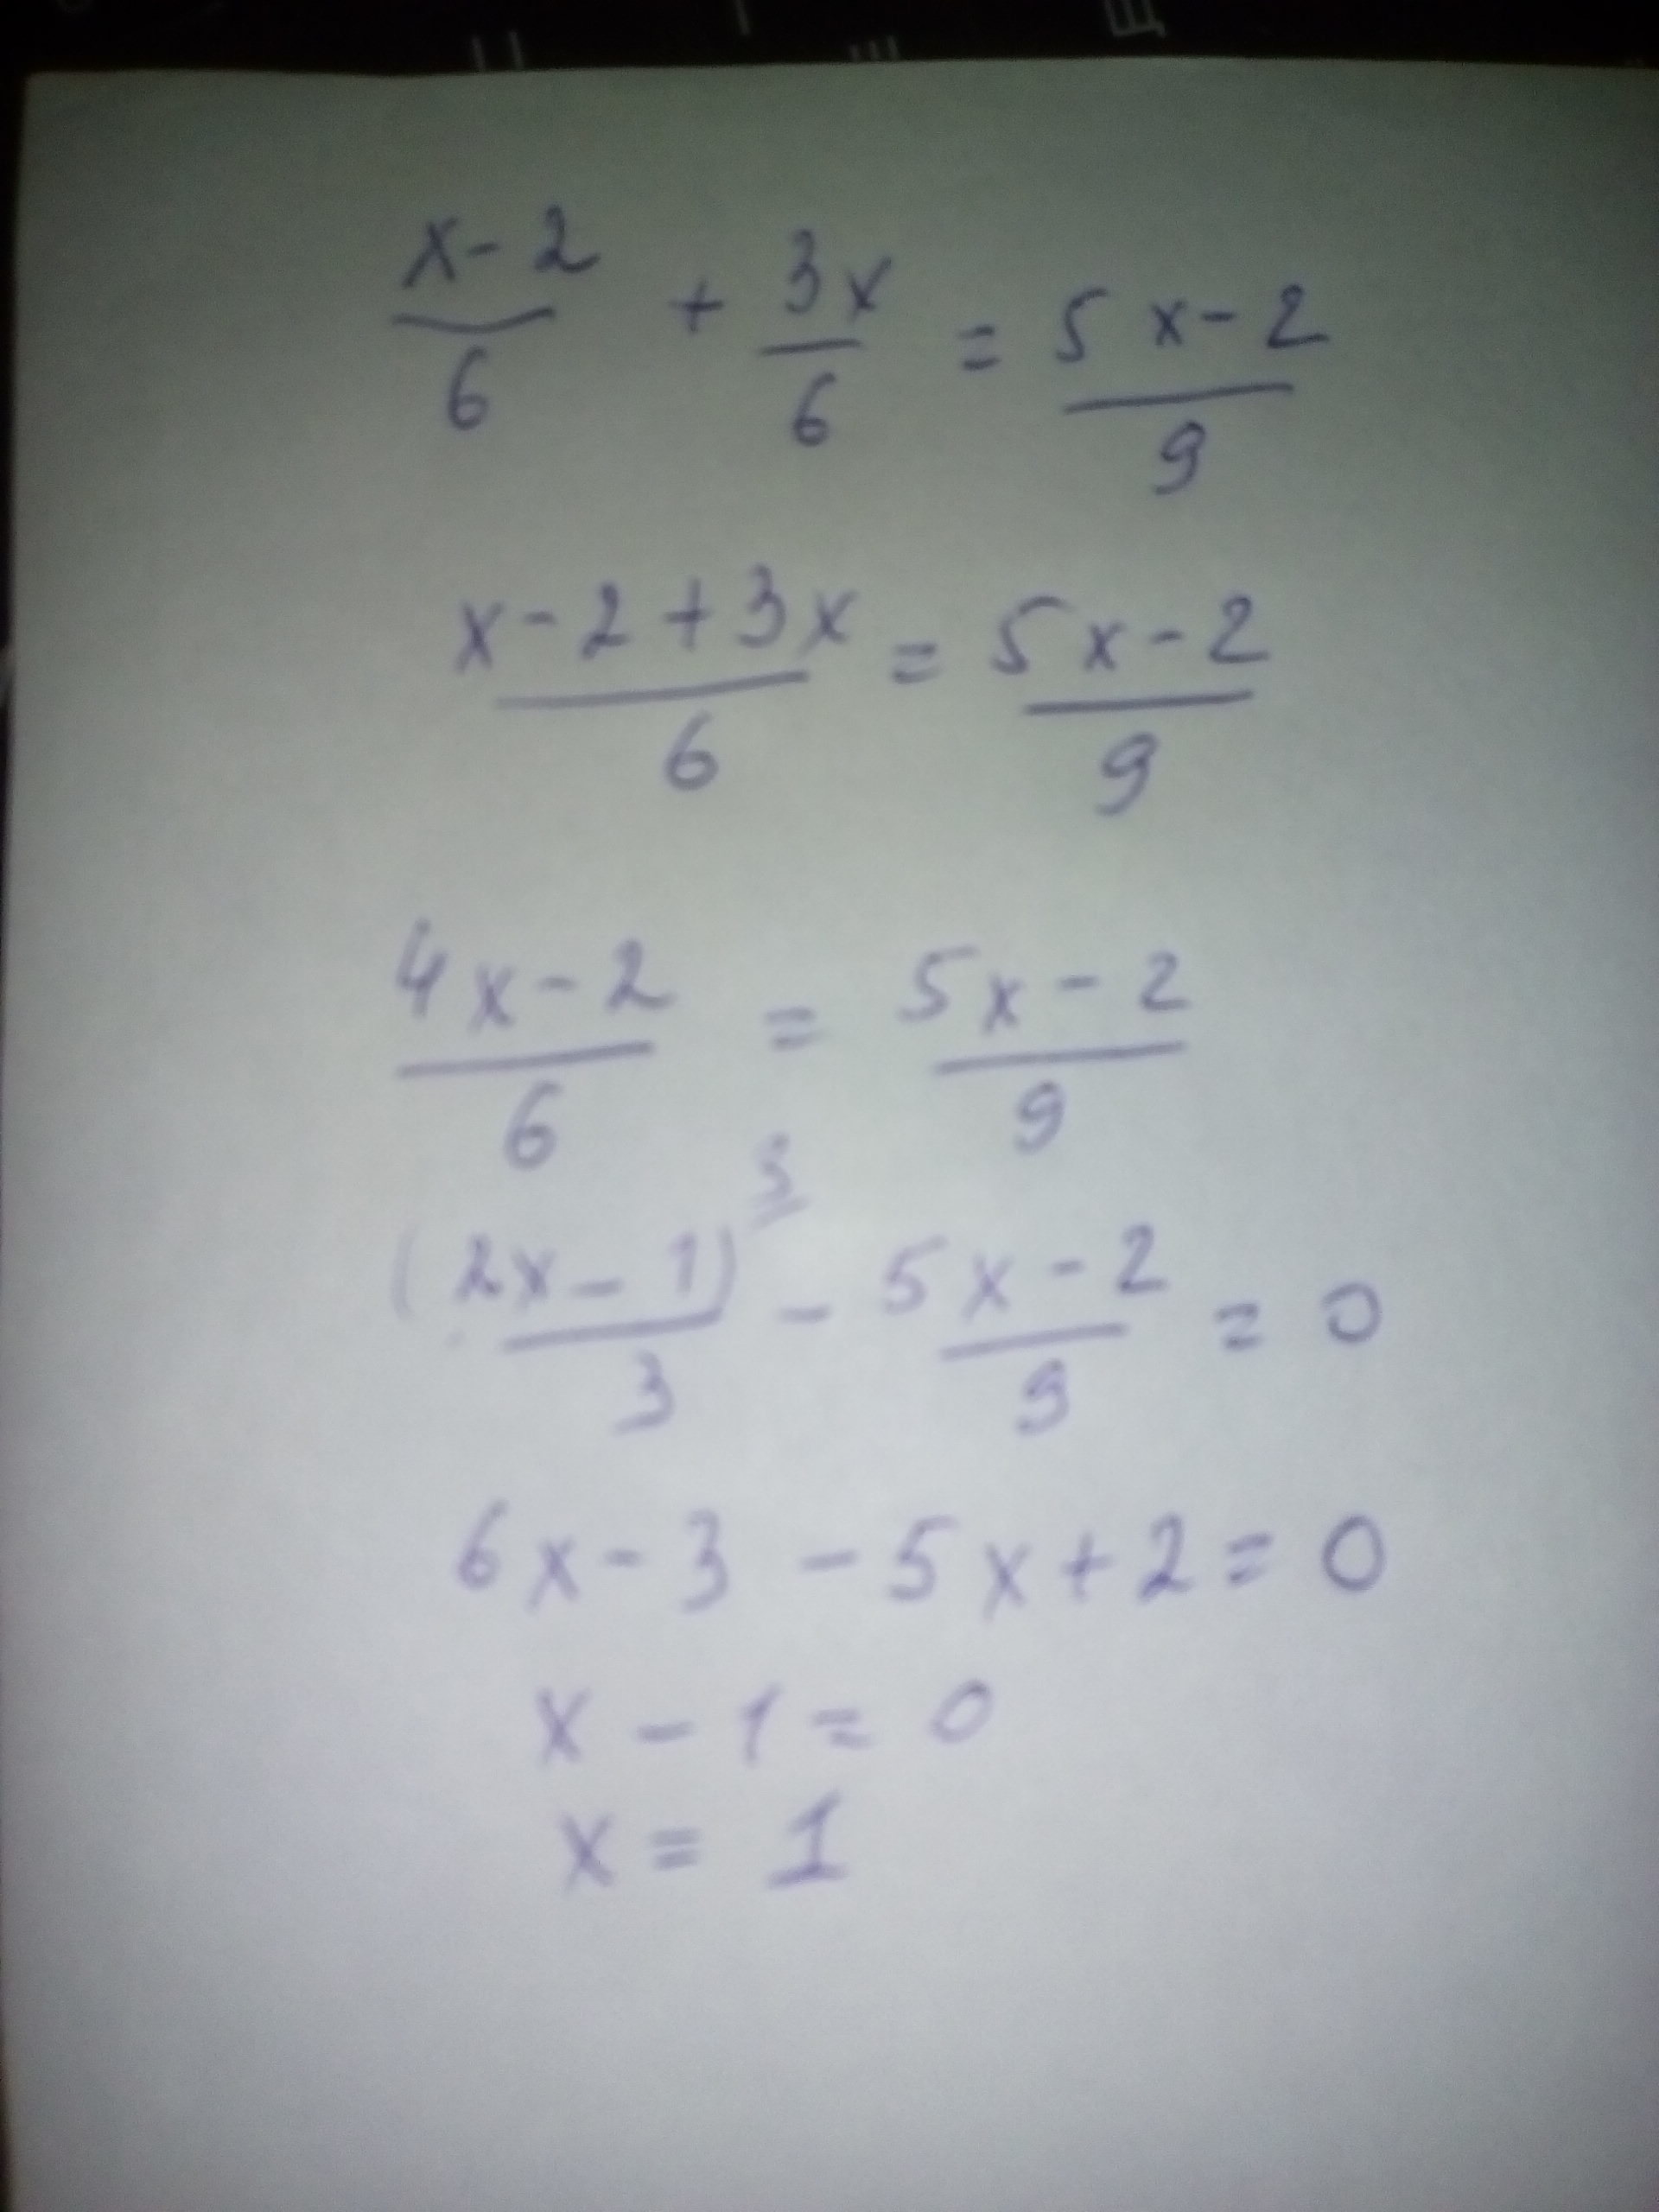 x-2/6 + 3x/6 = 5x-2/9
x-2+3x/6 = 5x-2/9
4x-2/6 = 5x-2/9
(2x-1)³/3 - 5x-2/9 = 0
6x-3 -5x+2=0
x-1=0
x=1